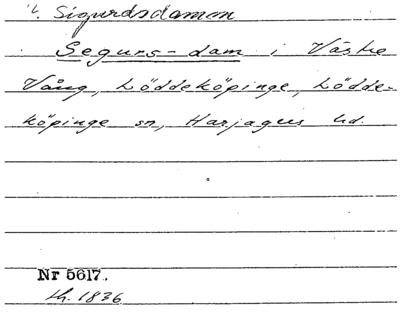 Sigurdsdammen
Segurs-dam i Västre
Vång, Löddeköpinge, Lödde-
köpinge sn, Harjagers hd.
Nr 5617.
th. 1836